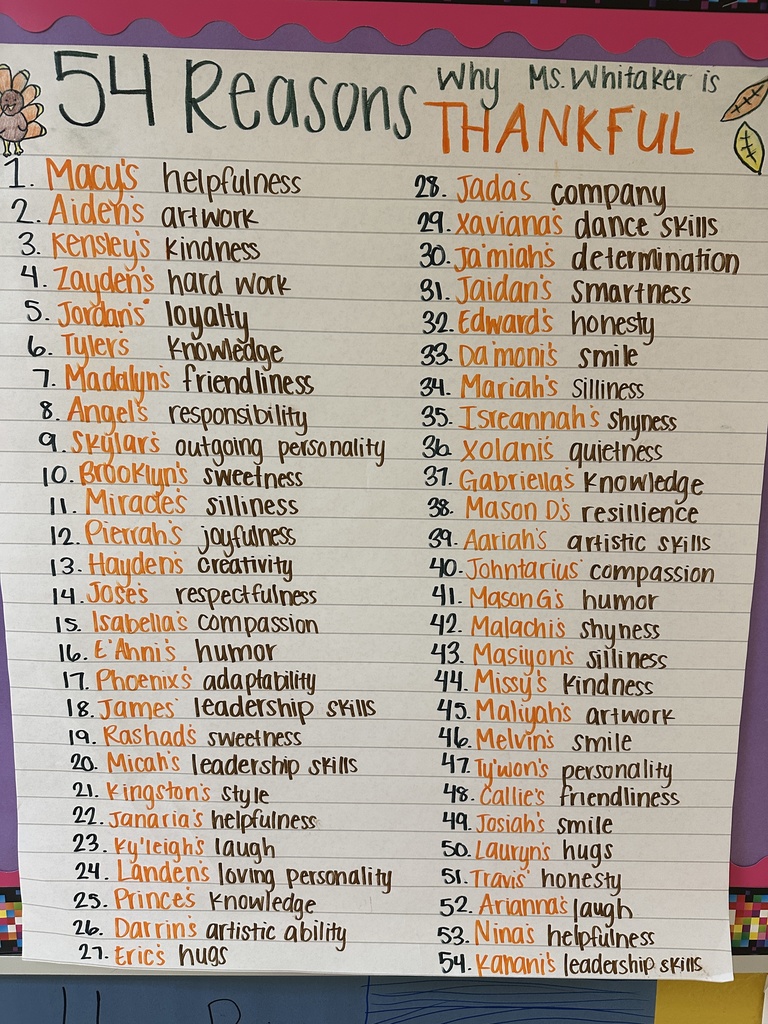 54 Reasons Why Ms. Whitaker is
THANKFUL
1. Macy's helpfulness
2. Aiden's artwork
3. Kensley's kindness
4. Zayden's hard work
5. Jordan's loyalty
6. Tyler's Knowledge
7. Madalyn's friendliness
8. Angel's responsibility
9. Skylar's outgoing personality
10. Brooklyn's sweetness
11. Miracle's silliness
12. Pierrah's joyfulness
13. Hayden's creativity
14. Jose's respectfulness
15. Isabella's compassion
16. E'Ahni's humor
17. Phoenix's adaptability
18. James' leadership skills
19. Rashad's sweetness
20. Micah's leadership skills
21. Kingston's style
22. Janaria's helpfulness
23. Ky'leigh's laugh
24. Landen's loving personality
25. Prince's Knowledge
26. Darrin's artistic ability
27. Eric's hugs
28. Jada's company
29. Xaviana's dance skills
30. Ja'miah's determination
31. Jaidan's smartness
32. Edward's honesty
33. Da'moni's smile
34. Mariah's silliness
35. Isreannah's shyness
36. Xolani's quietness
37. Gabriella's Knowledge
38. Mason D's resillience
39. Aariah's artistic skills
40. Johntarius' compassion
41. Mason G's humor
42. Malachi's shyness
43. Masiyon's silliness
44. Missy's Kindness
45. Maliyah's artwork
46. Melvin's smile
47. Ty'won's personality
48. Callie's friendliness
49. Josiah's smile
50. Lauryn's hugs
51. Travis' honesty
52. Arianna's laugh
53. Nina's helpfulness
54. Kanani's leadership skills